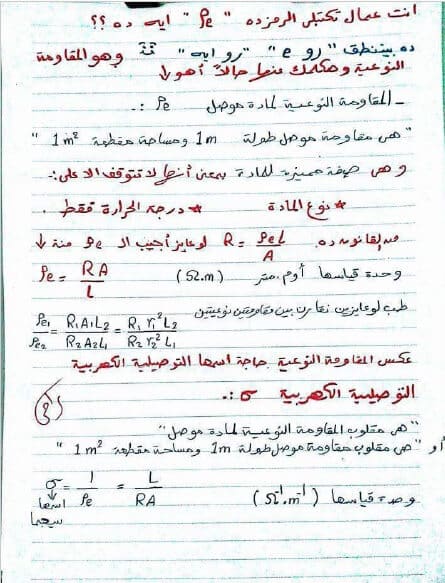 انت عمال تكتبلى الرمز ده "ρe" ايه ده ؟؟
ده بيتنطق "رو e" "رو ايه" وهو المقاومة
النوعية وهكلمك عنها حالاً أهو ↓
ـ المقاومة النوعية لمادة موصل ρe :ـ
"هى مقاومة موصل طولة 1m ومساحة مقطعة 1m²"
وهى صفة مميزة للمادة بمعنى أنها لا تتوقف الا على:ـ
* نوع المادة * درجة الحرارة فقط .
من القانون ده R = ρeL/A لو عايز أجيب الـ ρe منة ↓
ρe = RA/L (Ω.m) وحدة قياسها أوم.متر
طب لو عايزين نقارن بين مقاومتين نوعيتين
ρe₁/ρe₂ = R₁A₁L₂/R₂A₂L₁ = R₁r₁²L₂/R₂r₂²L₁
عكس المقاومة النوعية حاجة اسمها التوصيلية الكهربية
التوصيلية الكهربية σ :ـ
"هى مقلوب المقاومة النوعية لمادة موصل"
أو "هى مقلوب مقاومة موصل طولة 1m ومساحة مقطعة 1m²"
σ = 1/ρe = L/RA (Ω⁻¹.m⁻¹) وحدة قياسها
اسمها
سيجما